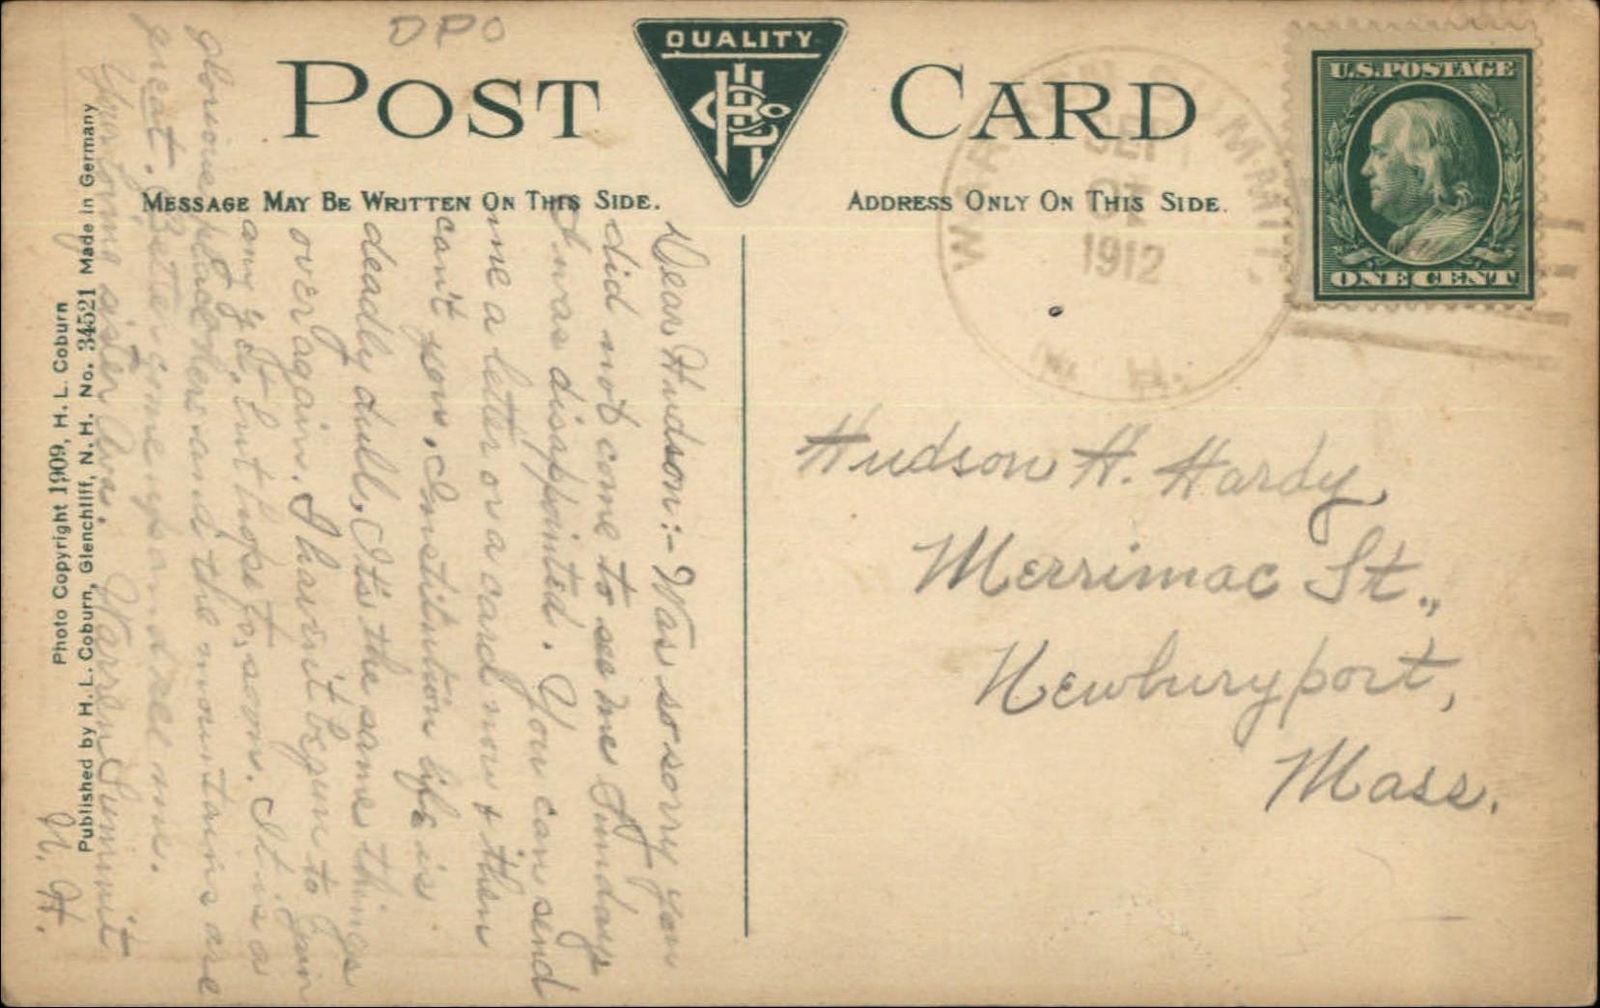 DPO
POST CARD
QUALITY
MESSAGE MAY BE WRITTEN ON THIS SIDE.
ADDRESS ONLY ON THIS SIDE.
U.S.POSTAGE
ONE CENT
WARREN SUMMIT,
SEP
1912
N. H.
Hudson H. Hardy,
Merrimac St.,
Newburyport,
Mass.
Dear Hudson:- Was so sorry you
did not come to see me Sunday
I was disappointed. You can send
me a letter or a card now & then
can't you. Institution life is
deadly dull. It's the same things
over again. I havn't begun to gain
any yet, but hope to, soon. It is a
glorious place here and the mountains are
great. Better come up and see me.
Your loving sister Ava. Warren Summit
N. H.
Photo Copyright 1909, H. L. Coburn
Published by H. L. Coburn, Glencliff, N. H. No. 34521 Made in Germany